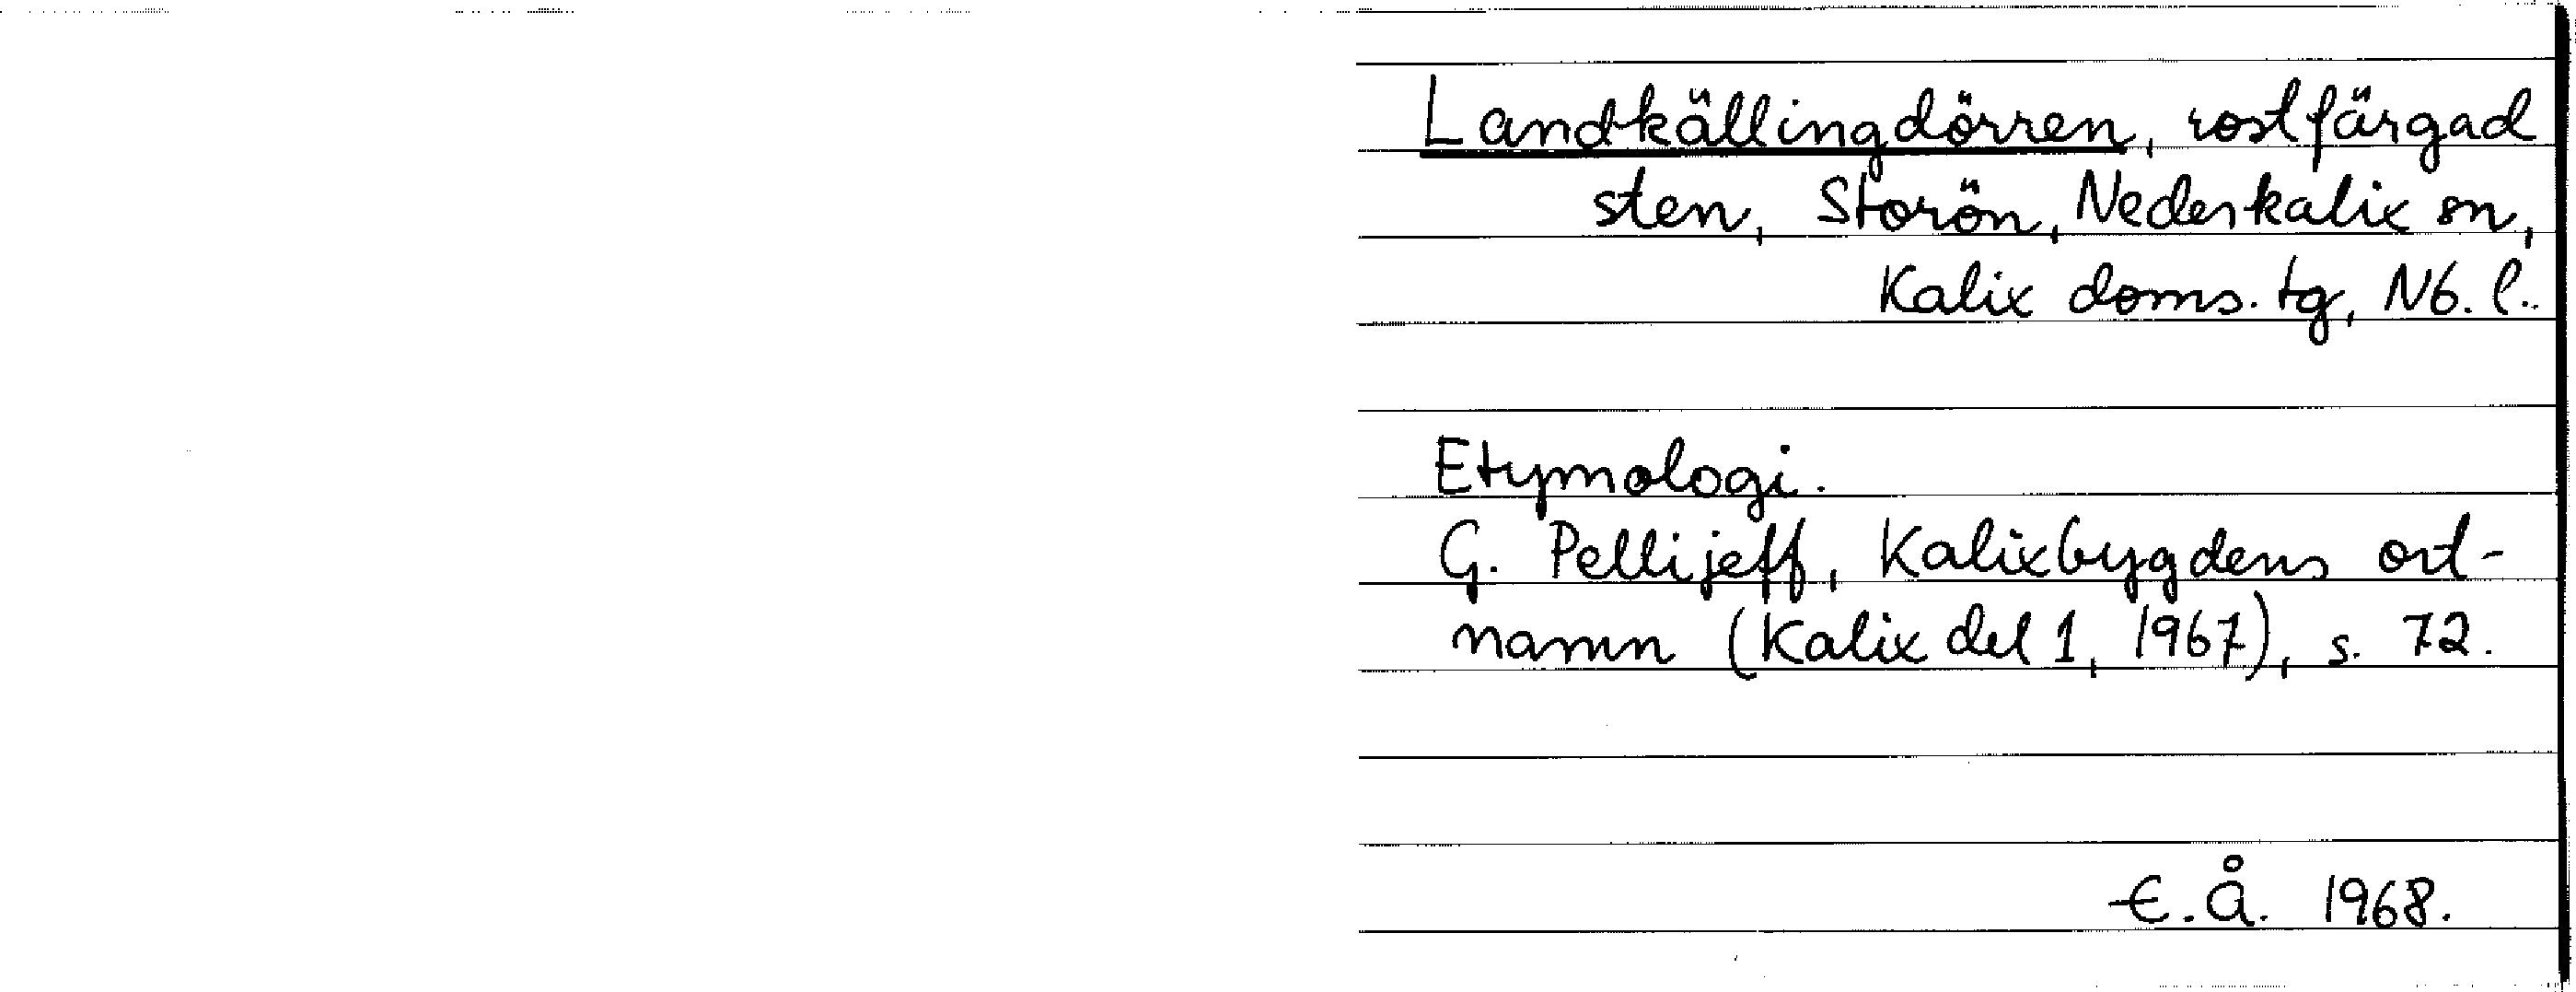 Landkällingdörren, rostfärgad
sten, Storön, Nederkalix sn,
Kalix doms. tg, Nb. l.
Etymologi.
G. Pellijeff, Kalixbygdens ort-
namn (Kalix del 1, 1967), s. 72.
E. Å. 1968.